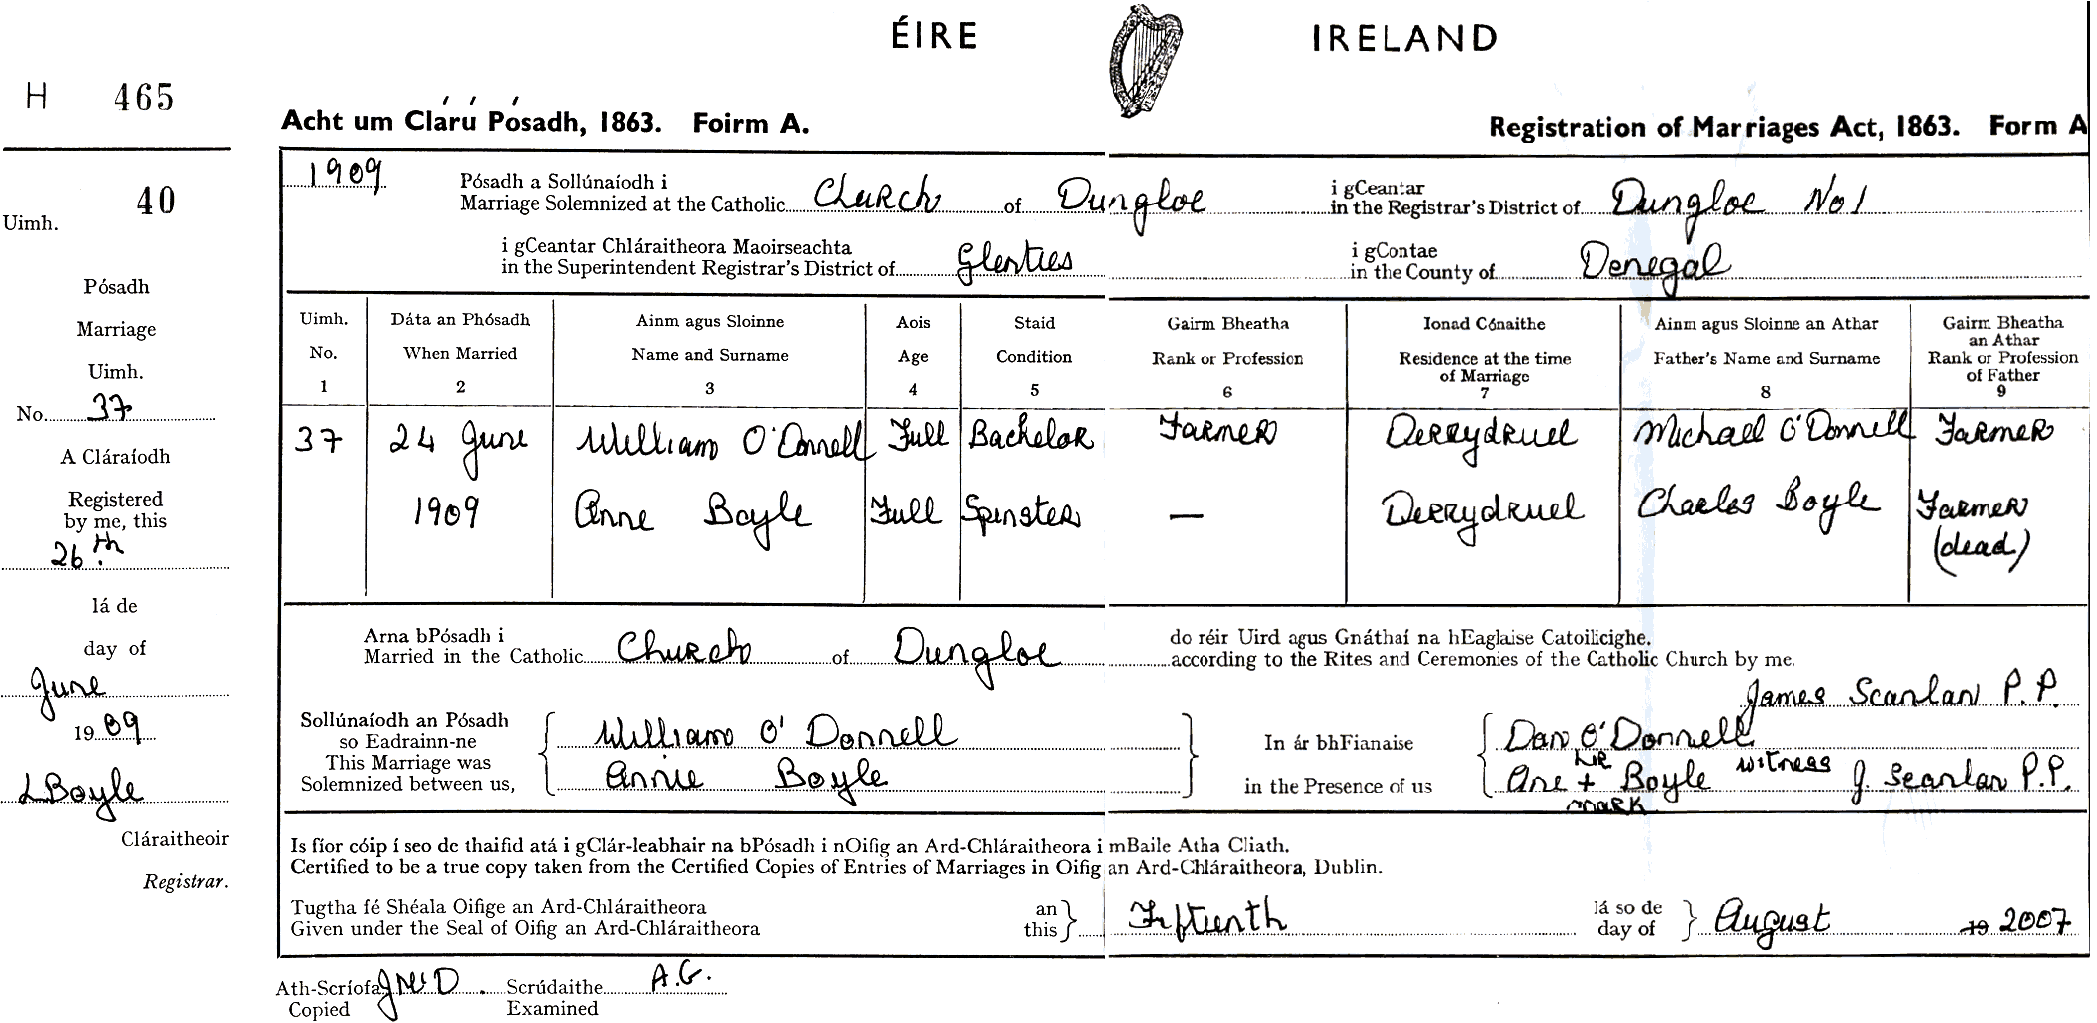 ÉIRE IRELAND
H 465
Acht um Clárú Pósadh, 1863. Foirm A. Registration of Marriages Act, 1863. Form A
Uimh. 40
Pósadh
Marriage
Uimh.
No. 37
A Cláraíodh
Registered
by me, this
26th
lá de
day of
June
1909
L Boyle
Cláraitheoir
Registrar.
1909 Pósadh a Sollúnaíodh i i gCeantar
Marriage Solemnized at the Catholic Church of Dungloe in the Registrar's District of Dungloe No 1
i gCeantar Chláraitheora Maoirseachta i gContae
in the Superintendent Registrar's District of Glenties in the County of Donegal
Uimh. Dáta an Phósadh Ainm agus Sloinne Aois Staid Gairm Bheatha Ionad Cónaithe Ainm agus Sloinne an Athar Gairm Bheatha an Athar
No. When Married Name and Surname Age Condition Rank or Profession Residence at the time of Marriage Father's Name and Surname Rank or Profession of Father
1 2 3 4 5 6 7 8 9
37 24 June William O'Donnell Full Bachelor Farmer Derrydruel Michael O'Donnell Farmer
1909 Anne Boyle Full Spinster — Derrydruel Charles Boyle Farmer
(dead)
Arna bPósadh i do réir Uird agus Gnáthaí na hEaglaise Catoilicighe.
Married in the Catholic Church of Dungloe according to the Rites and Ceremonies of the Catholic Church by me.
James Scanlan P.P.
Sollúnaíodh an Pósadh
so Eadrainn-ne William O' Donnell In ár bhFianaise Dan O'Donnell
This Marriage was
Solemnized between us, Annie Boyle in the Presence of us Ane + Boyle witness J. Scanlan P.P.
her
mark
Is fíor cóip í seo de thaifid atá i gClár-leabhair na bPósadh i nOifig an Ard-Chláraitheora i mBaile Atha Cliath.
Certified to be a true copy taken from the Certified Copies of Entries of Marriages in Oifig an Ard-Chláraitheora, Dublin.
Tugtha fé Shéala Oifige an Ard-Chláraitheora an lá so de
Given under the Seal of Oifig an Ard-Chláraitheora this Fifteenth day of August 19 2007
Ath-Scríofa Scrúdaithe A.G.
Copied Examined